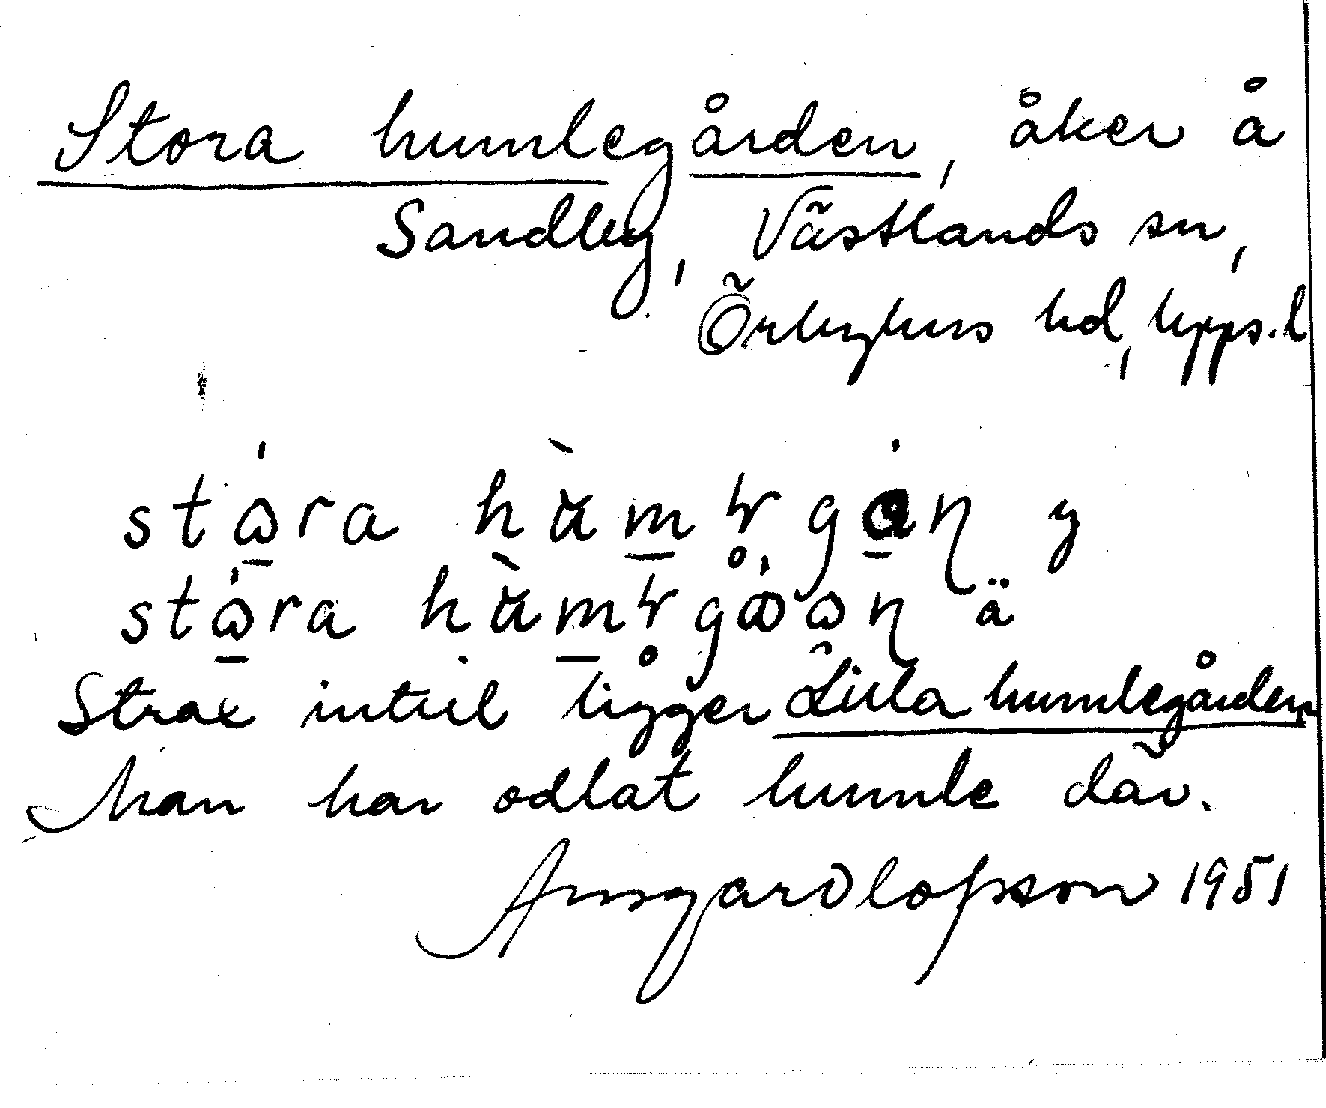 Stora humlegården, åker å
Sandby, Västlands sn,
Örbyhus hd, Upps. l
Strax intill ligger Lilla humlegården
Man har odlat humle där.
Ansgar Olofsson 1951